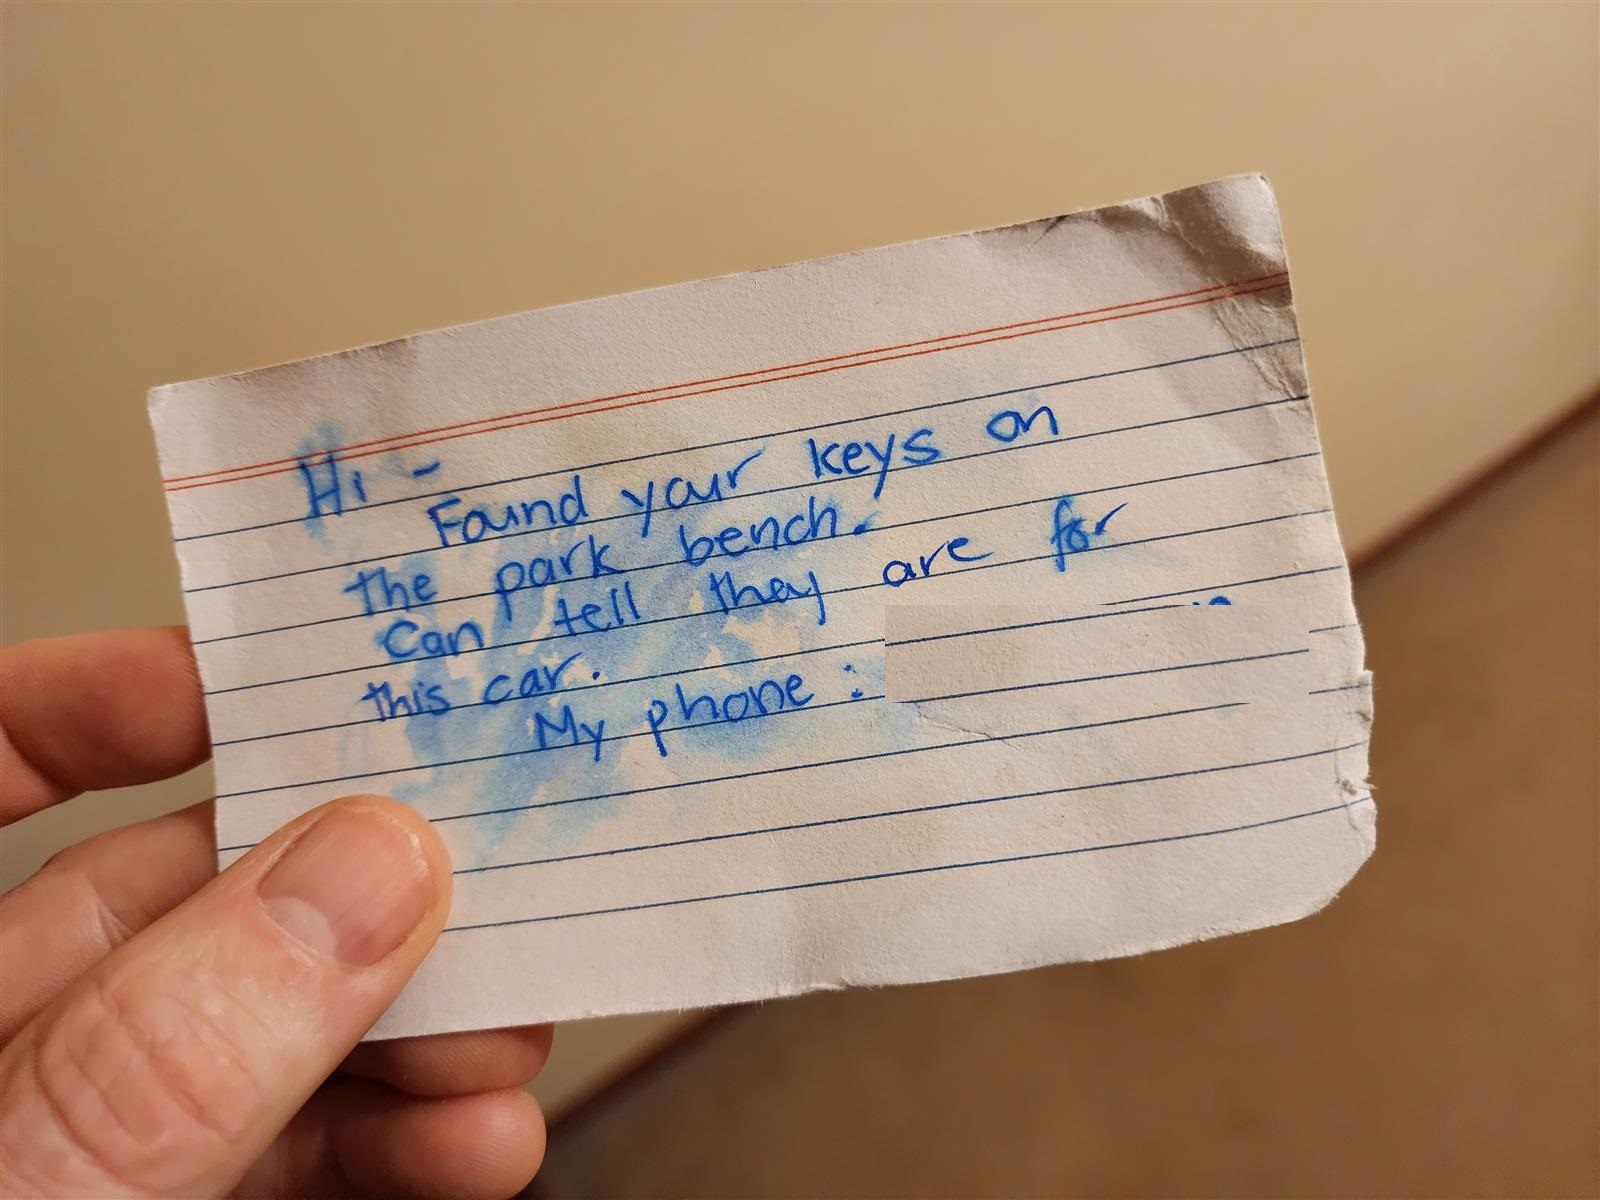 Hi -
Found your keys on
the park bench.
Can tell they are for
this car.
My phone :